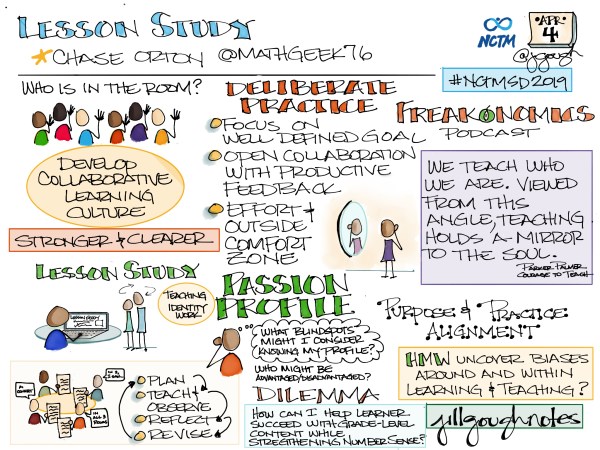 LESSON STUDY
CHASE ORTON @MATHGEEK76
NCTM
APR
4
@jgough
#NCTMSD2019
WHO IS IN THE ROOM?
DEVELOP
COLLABORATIVE
LEARNING
CULTURE
STRONGER & CLEARER
DELIBERATE
PRACTICE
FOCUS ON
WELL DEFINED GOAL
OPEN COLLABORATION
WITH PRODUCTIVE
FEEDBACK
EFFORT &
OUTSIDE
COMFORT
ZONE
FREAKONOMICS
PODCAST
WE TEACH WHO
WE ARE. VIEWED
FROM THIS
ANGLE, TEACHING
HOLDS A MIRROR
TO THE SOUL.
PARKER PALMER
COURAGE TO TEACH
LESSON STUDY
LESSON STUDY
TEACHING
IDENTITY
WORK
PLAN
TEACH &
OBSERVE
REFLECT
REVISE
PASSION
PROFILE
WHAT BLINDSPOTS
MIGHT I CONSIDER
KNOWING MY PROFILE?
WHO MIGHT BE
ADVANTAGED/DISADVANTAGED?
DILEMMA
HOW CAN I HELP LEARNER
SUCCEED WITH GRADE-LEVEL
CONTENT WHILE
STREGTHENING NUMBER SENSE?
PURPOSE & PRACTICE
ALIGNMENT
HMW UNCOVER BIASES
AROUND AND WITHIN
LEARNING & TEACHING?
jillgoughnotes